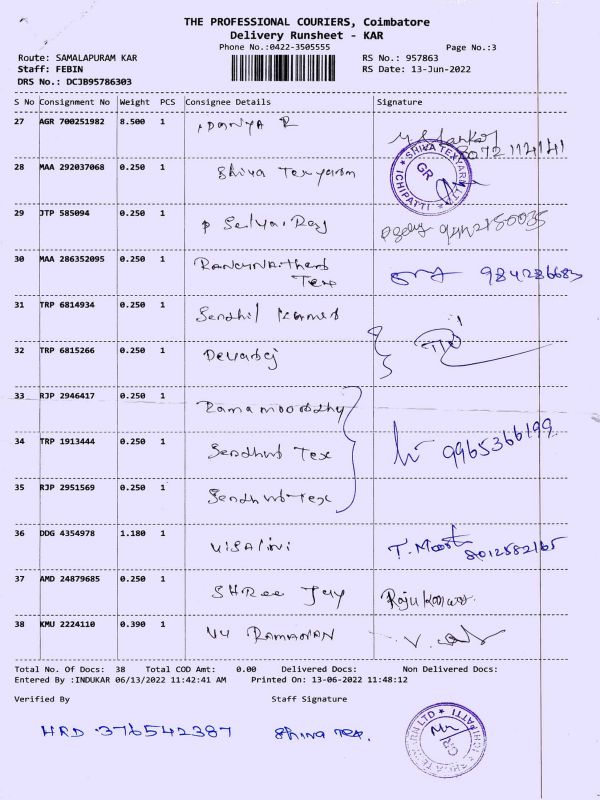 THE PROFESSIONAL COURIERS, Coimbatore
Delivery Runsheet - KAR
Phone No.:0422-3505555
Page No.:3
Route: SAMALAPURAM KAR
RS No.: 957863
Staff: FEBIN
RS Date: 13-Jun-2022
DRS No.: DCJB95786303
S No Consignment No Weight PCS Consignee Details Signature
27 AGR 700251982 8.500 1
28 MAA 292037068 0.250 1 Shiva Texyarn
SHIVA TEXYARN
ICHIPATTI
GR
29 JTP 585094 0.250 1 P Selva Raj
30 MAA 286352095 0.250 1
Tex
31 TRP 6814934 0.250 1 Sendhil Kumar
32 TRP 6815266 0.250 1 Devaraj
33 RJP 2946417 0.250 1 Ramamoordhy
34 TRP 1913444 0.250 1 Sendhur Tex 9965366199
35 RJP 2951569 0.250 1 Sendhur Tex
36 DDG 4354978 1.180 1 VISALINI T.
8012582165
37 AMD 24879685 0.250 1 SHRee Jay Rajukanwar
38 KMU 2224110 0.390 1 RAMANAN
Total No. Of Docs: 38 Total COD Amt: 0.00 Delivered Docs: Non Delivered Docs:
Entered By :INDUKAR 06/13/2022 11:42:41 AM Printed On: 13-06-2022 11:48:12
Verified By Staff Signature
HRD 376542387 Shiva Tex.